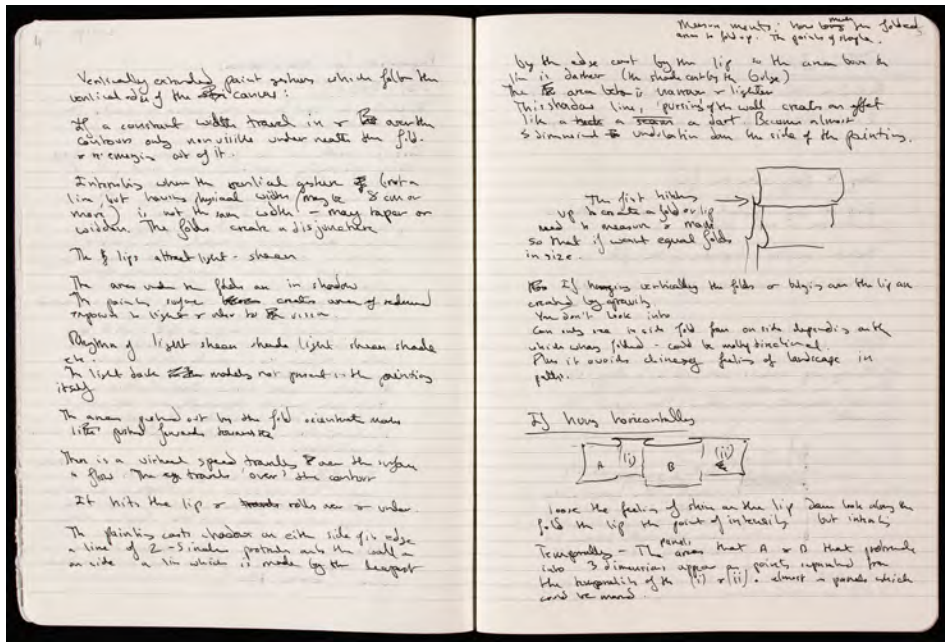 4
Vertically extended paint gestures which follow the
vertical sides of the canvas:
If a constant width travel in & over the
contour only non visible under neath the fold.
& re emerging out of it.
Interesting when the vertical gesture (not a
line, but having physical width maybe 8 cm or
more) is not the same width - may taper or
widden. The folds create a disjuncture
The lips attract light - sheen
The areas under the folds are in shadow
The painting surface creates areas of reduced
exposure to light & also to
Rhythm of light sheen shade light sheen shade
etc.
The light dark models not present in the painting
itself
The areas pushed out by the fold accentuate marks
pushed forwards towards
There is a virtual speed travels over the surface
a flow. The travels 'over' the contour
It hits the lip & rolls over or under.
The painting casts shadow on either side of its edge
a line of 2-5 inches protrudes onto the wall
on side a line which is made by the deepest
Measurements: how much the folded
area to fold up. The points of staple.
by the edge cast by the lip so the area have the
line is darker (the shade cast by the bulge)
The area below is narrower & lighter
This shadow line, 'pursing of the wall creates an effect
like a a dart. Become almost
3 dimensional undulation down the side of the painting.
The first hitch
up to create a fold or lip
need to measure & mark
so that if want equal folds
in size.
If hanging vertically the folds or bulges over the lip are
created by gravity
You don't look into
Can only see inside fold from one side depending on the
which way folded - could be multydirectional.
Plus it avoids feeling of landscape in
paths.
If hung horizontally
A (i) B (ii)
loose the feeling of shine on the lip Dawn look along the
fold the lip the point of intensity but intensity
panels
Temporally - The areas that A & B that protrude
into 3 dimensions appear as points separated from
the temporality of the (i) & (ii). almost as panels which
could be moved.